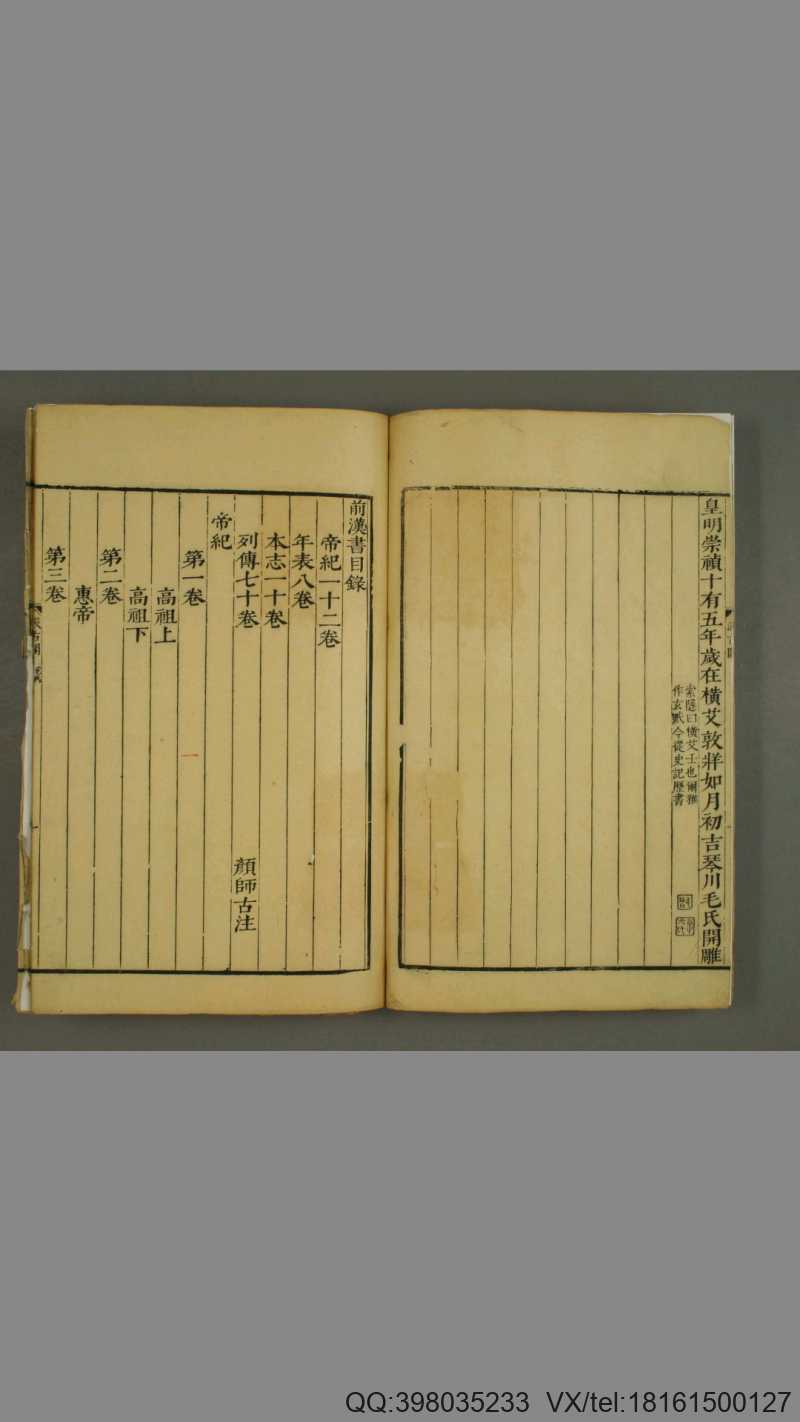 皇明崇禎十有五年歲在橫艾敦牂如月初吉琴川毛氏開雕
索隱曰橫艾壬也爾雅
作玄黓今從史記歷書
前漢書目錄
帝紀一十二卷
年表八卷
本志一十卷
列傳七十卷 顏師古注
帝紀
第一卷
高祖上
高祖下
第二卷
惠帝
第三卷
QQ:398035233 VX/tel:18161500127